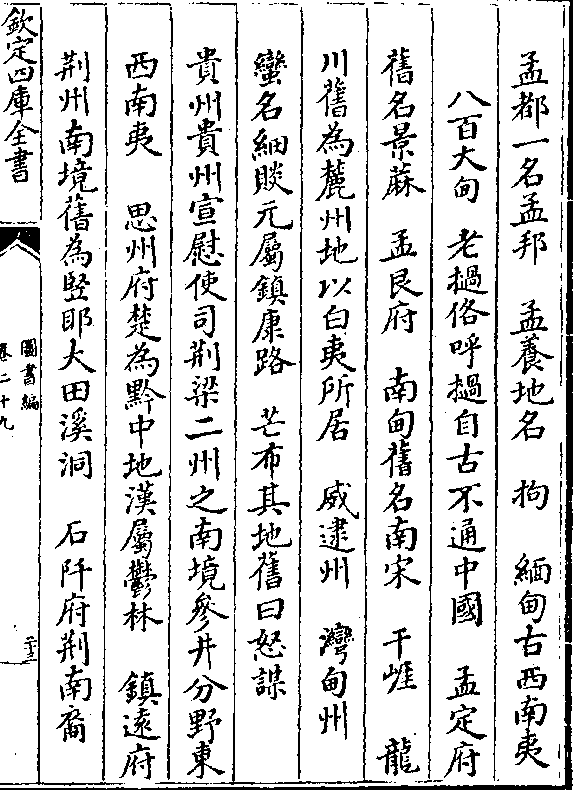 孟都一名孟邦　孟養地名　拘　緬甸古西南夷
八百大甸　老撾俗呼撾自古不通中國　孟定府
舊名景蔴　孟艮府　南甸舊名南宋　干崖　龍
川舊為麓州地以白夷所居　威逮州　灣甸州
蠻名細賧元屬鎮康路　芒布其地舊曰怒謀
貴州貴州宣慰使司荆梁二州之南境參井分野東
西南夷　思州府楚為黔中地漢屬鬱林　鎮遠府
荆州南境舊為竪耶大田溪洞　石阡府荆南裔
欽定四庫全書
圖書編
卷二十九
二十三